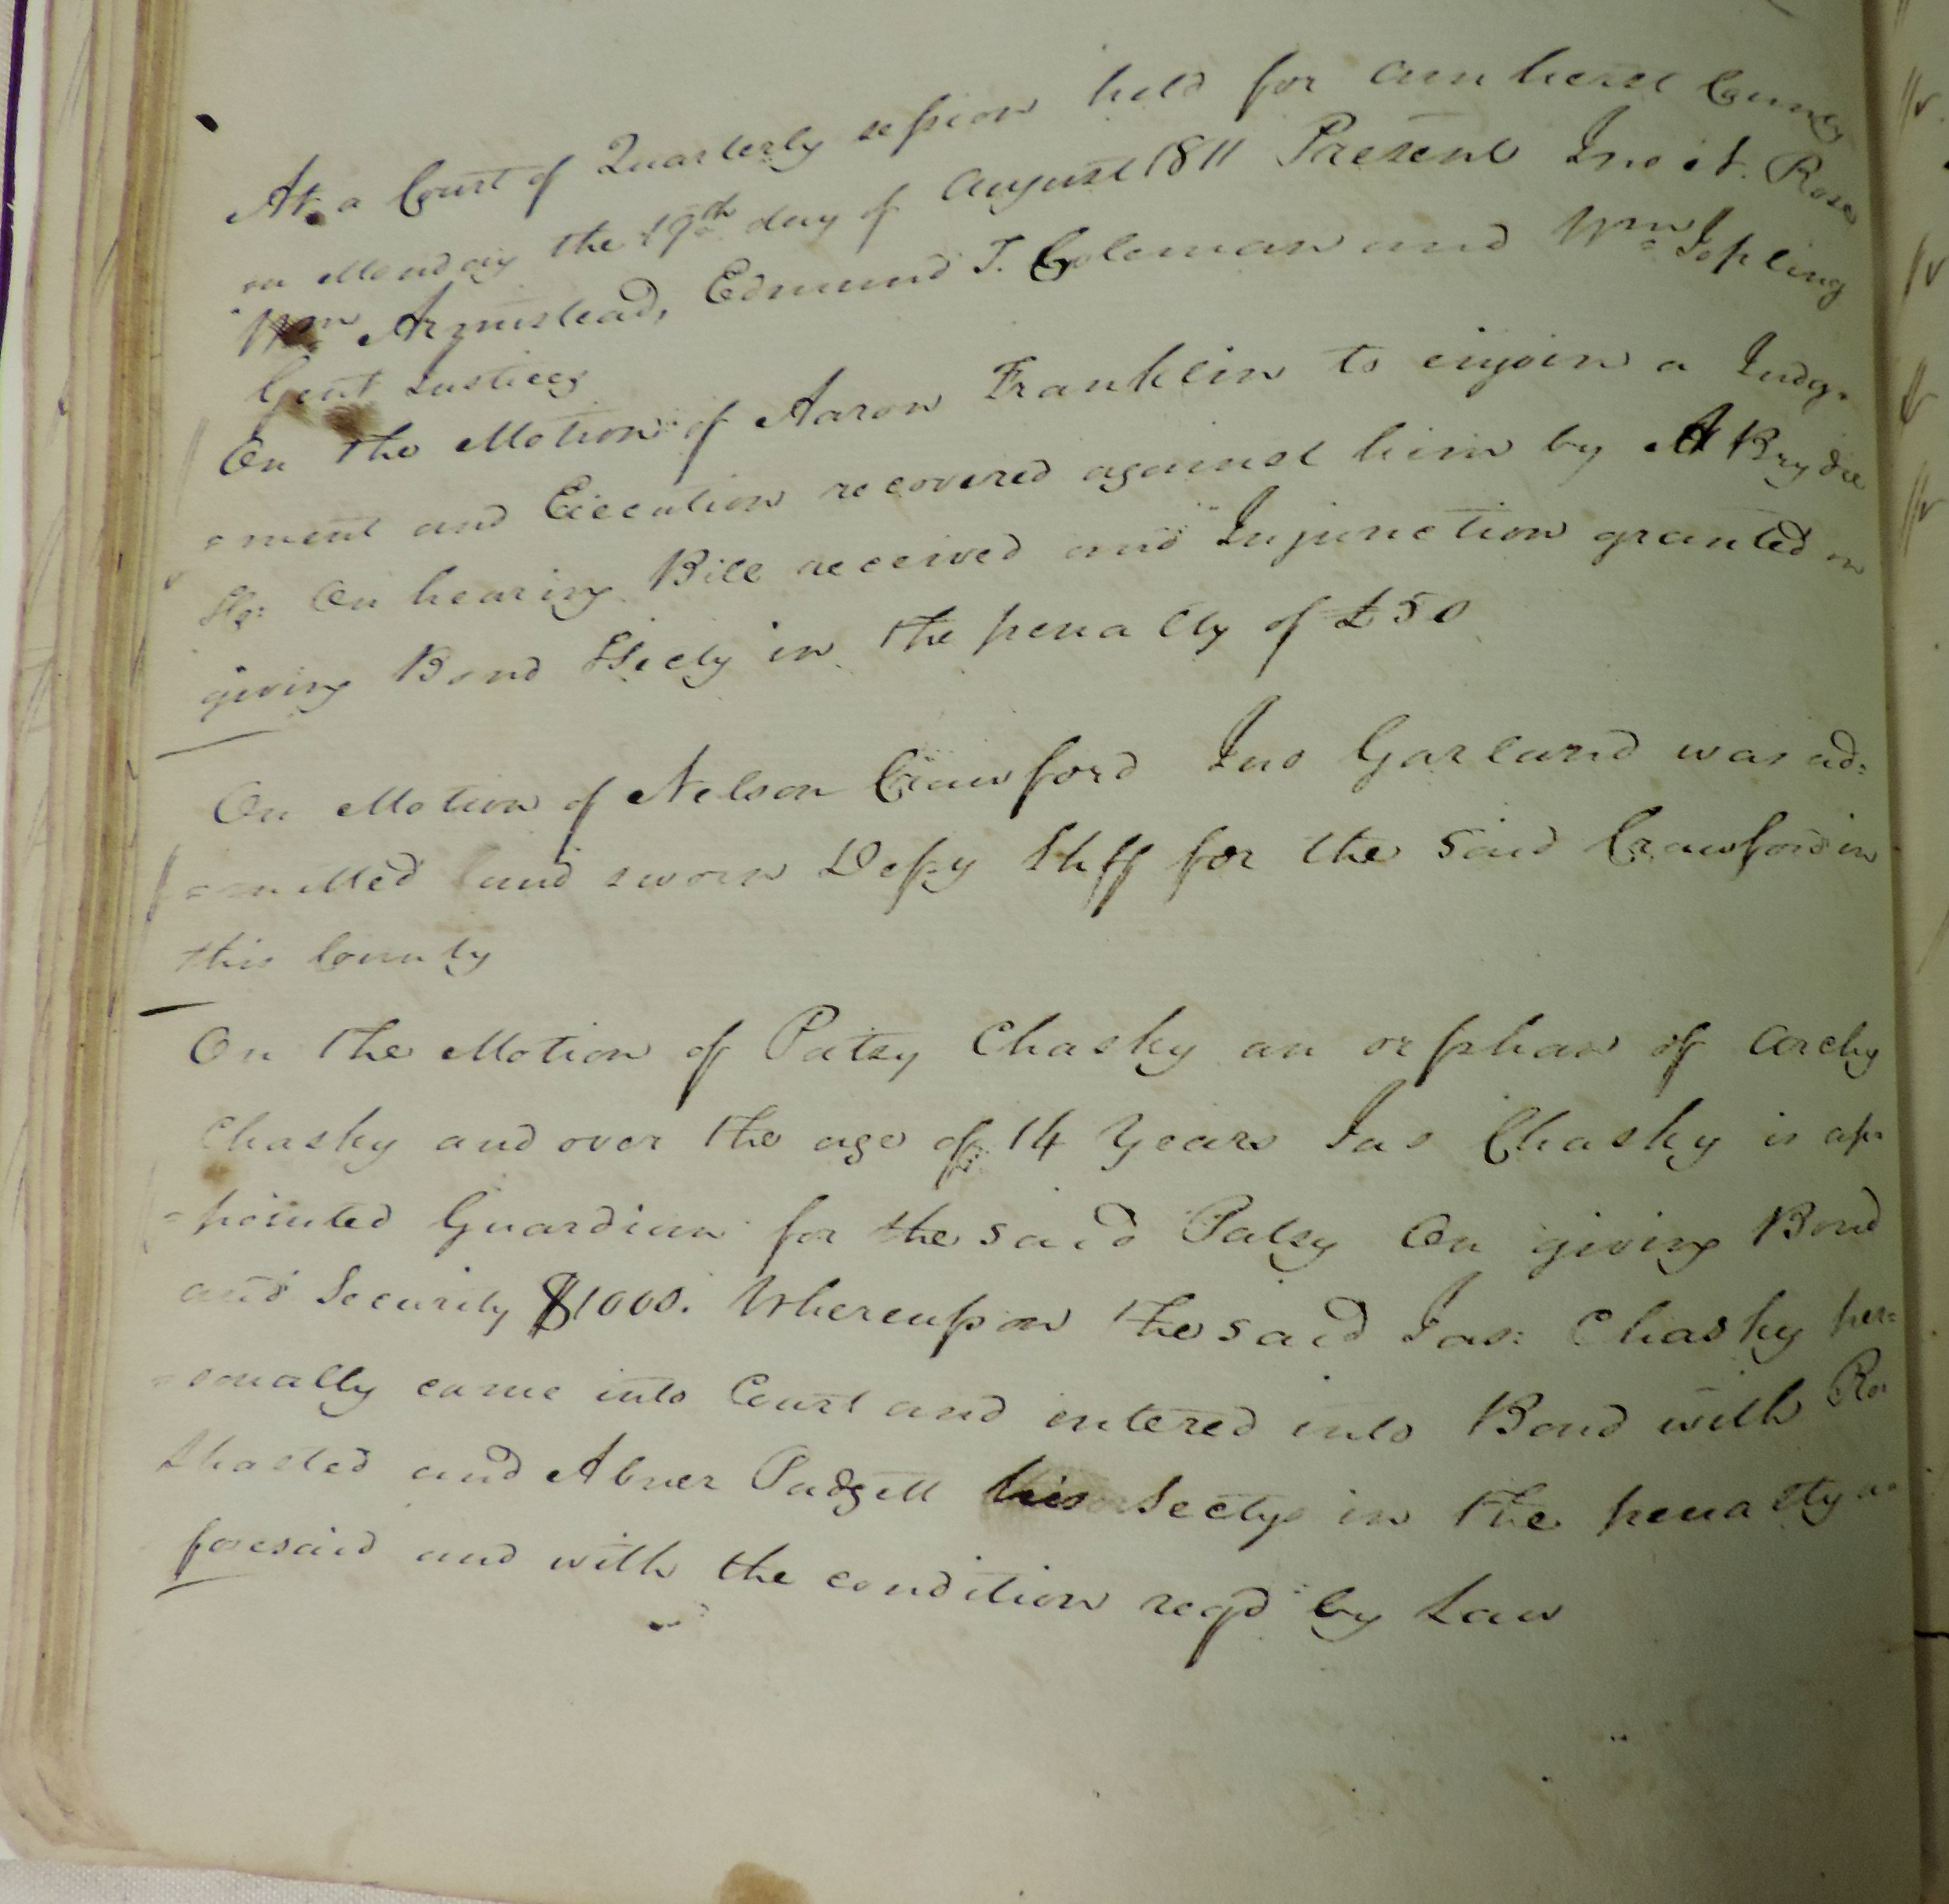 At a Court of Quarterly session held for Amherst County
on Monday the 19th day of August 1811 Present Jno N. Rose
Wm Armistead, Edmund T. Coleman and Wm Jopling
Gent Justices
On the Motion of Aaron Franklin to enjoin a Judg=
=ment and Execution recovered against him by A Brydie
On hearing Bill received and Injunction granted on
giving Bond &Secty in the penalty of £50
On Motion of Nelson Crawford Jno Garland was ad=
=mitted and sworn Depy Shff for the said Crawford in
this County
On the Motion of Patsy Chasky an orphan of Archy
Chasky and over the age of 14 Years Jas Chasky is ap=
=pointed Guardian for the said Patsy On giving Bond
and Security $1000. Whereupon the said Jas: Chasky per=
=sonally came into Court and entered into Bond with Ro:
and Abner Padgett his Sectys in the penalty a=
foresaid and with the condition reqd by Law